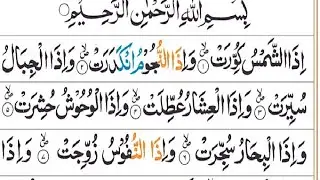 بِسْمِ اللّٰهِ الرَّحْمٰنِ الرَّحِيْمِ
اِذَا الشَّمْسُ كُوِّرَتْ ۙ۝۱ وَاِذَا النُّجُوْمُ انْكَدَرَتْ ۙ۝۲ وَاِذَا الْجِبَالُ
سُيِّرَتْ ۙ۝۳ وَاِذَا الْعِشَارُ عُطِّلَتْ ۙ۝۴ وَاِذَا الْوُحُوْشُ حُشِرَتْ ۙ۝۵
وَاِذَا الْبِحَارُ سُجِّرَتْ ۙ۝۶ وَاِذَا النُّفُوْسُ زُوِّجَتْ ۙ۝۷ وَاِذَا